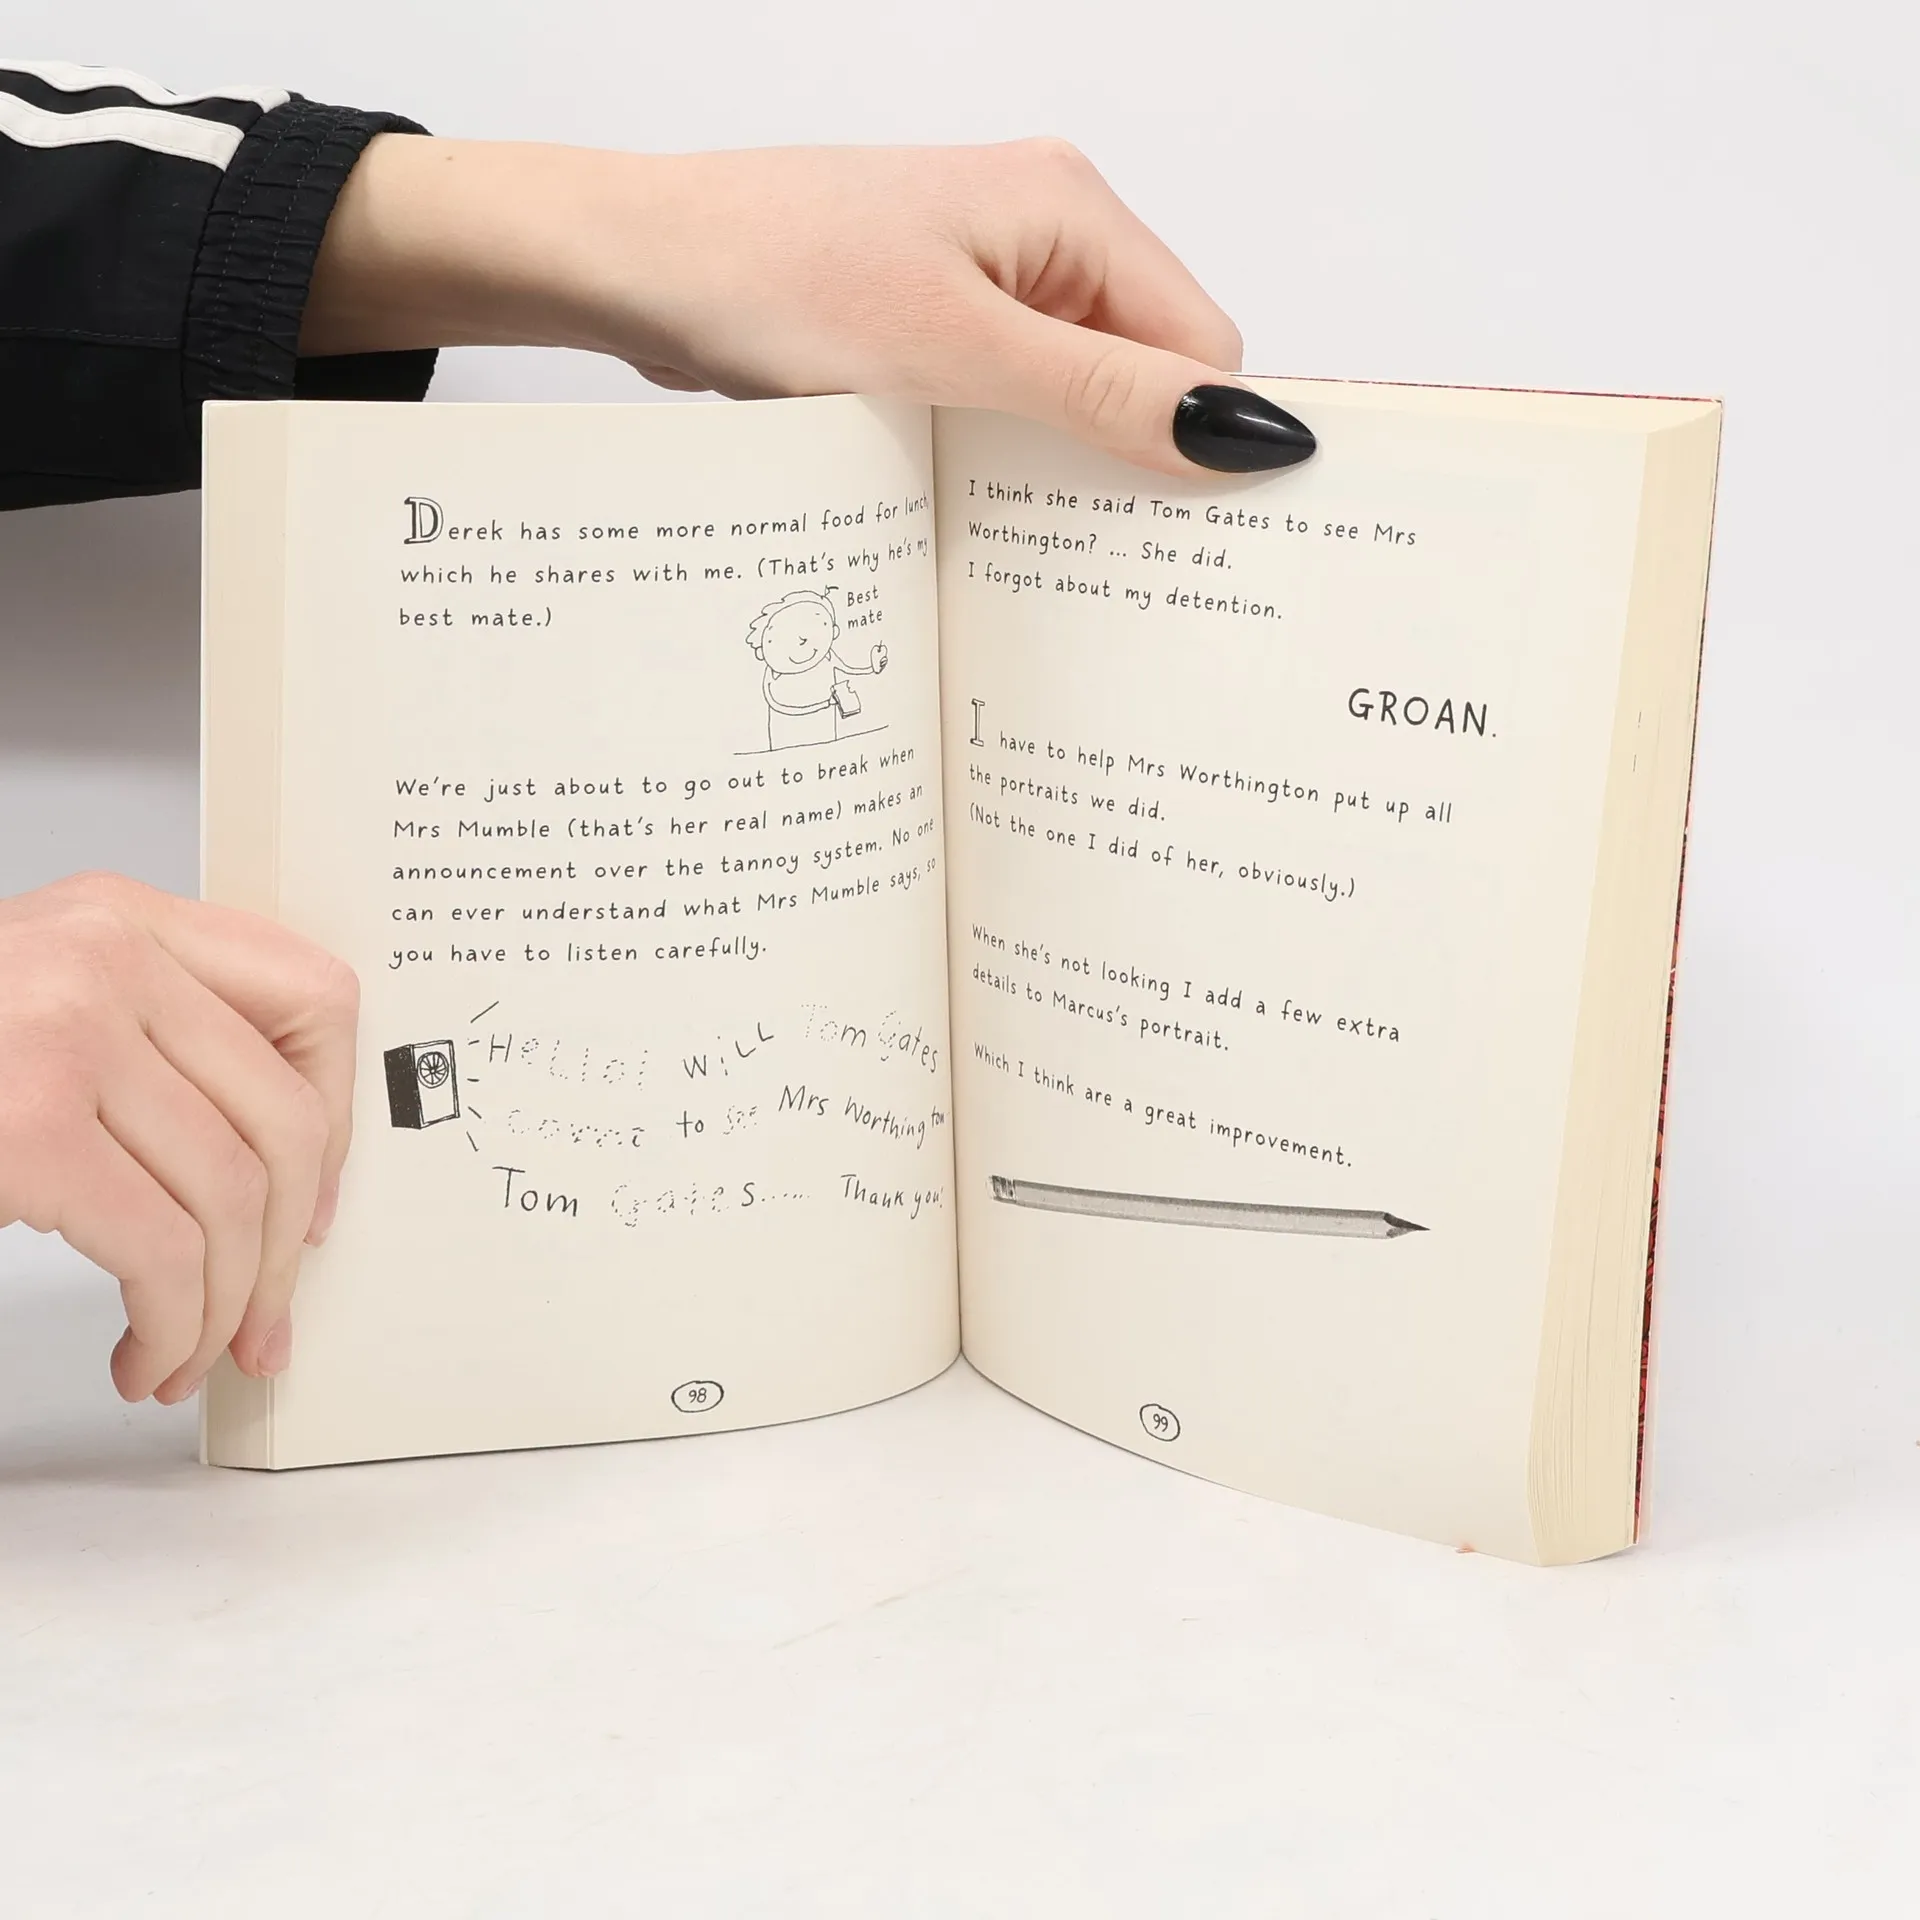 Derek has some more normal food for lunch,
which he shares with me. (That's why he's my
best mate.)
Best
mate
We're just about to go out to break when
Mrs Mumble (that's her real name) makes an
announcement over the tannoy system. No one
can ever understand what Mrs Mumble says, so
you have to listen carefully.
Hello! Will Tom Gates
Come to see Mrs Worthington
Tom Gates...... Thank you!
98
I think she said Tom Gates to see Mrs
Worthington? ... She did.
I forgot about my detention.
GROAN.
I have to help Mrs Worthington put up all
the portraits we did.
(Not the one I did of her, obviously.)
When she's not looking I add a few extra
details to Marcus's portrait.
Which I think are a great improvement.
99